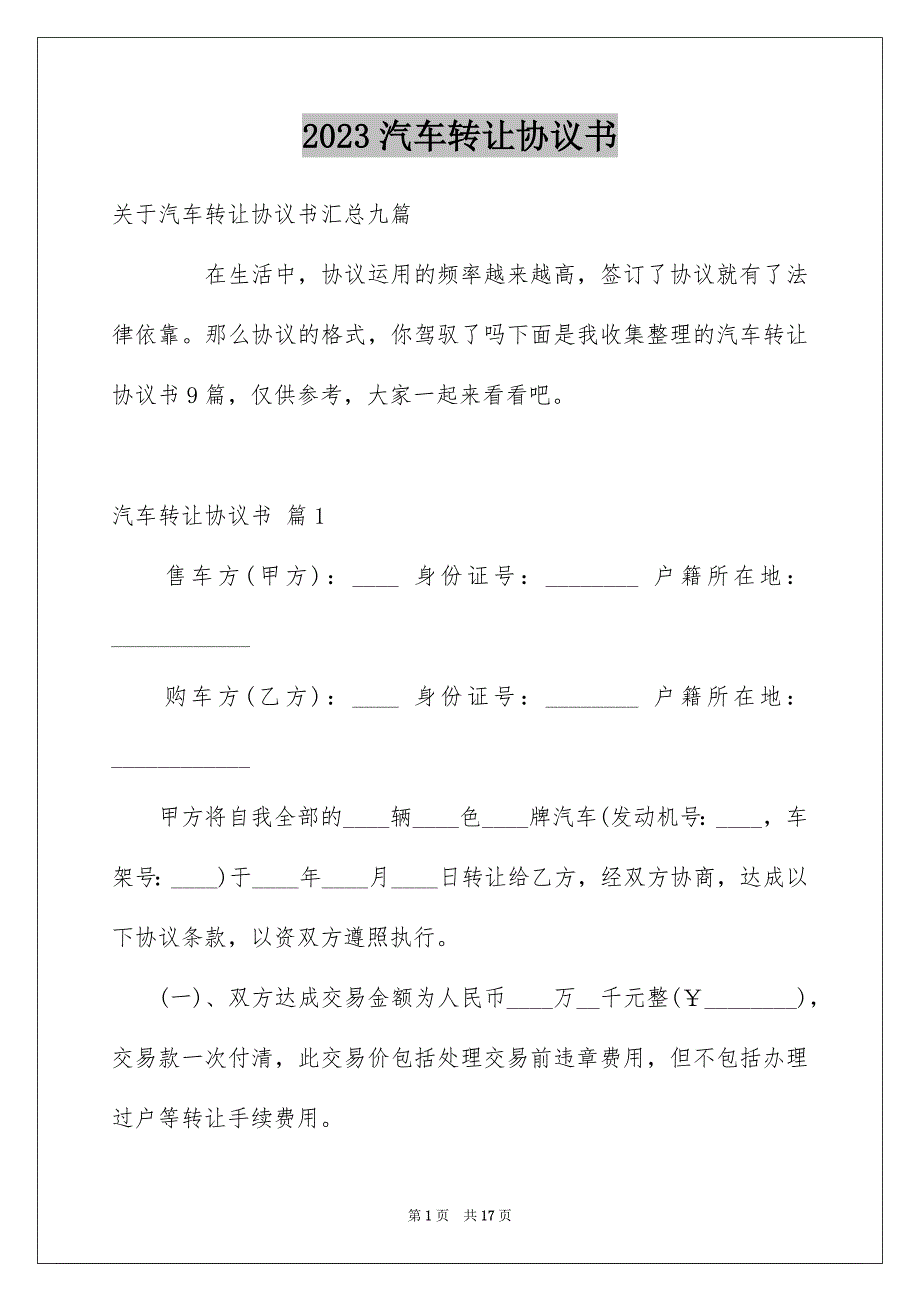 2023汽车转让协议书
关于汽车转让协议书汇总九篇
在生活中，协议运用的频率越来越高，签订了协议就有了法
律依靠。那么协议的格式，你驾驭了吗下面是我收集整理的汽车转让
协议书9篇，仅供参考，大家一起来看看吧。
汽车转让协议书 篇1
售车方(甲方)：____ 身份证号：________ 户籍所在地：
____________
购车方(乙方)：____ 身份证号：________ 户籍所在地：
____________
甲方将自我全部的____辆____色____牌汽车(发动机号：____，车
架号：____)于____年____月____日转让给乙方，经双方协商，达成以
下协议条款，以资双方遵照执行。
(一)、双方达成交易金额为人民币____万__千元整(￥________)，
交易款一次付清，此交易价包括处理交易前违章费用，但不包括办理
过户等转让手续费用。
第 1 页 共 17 页